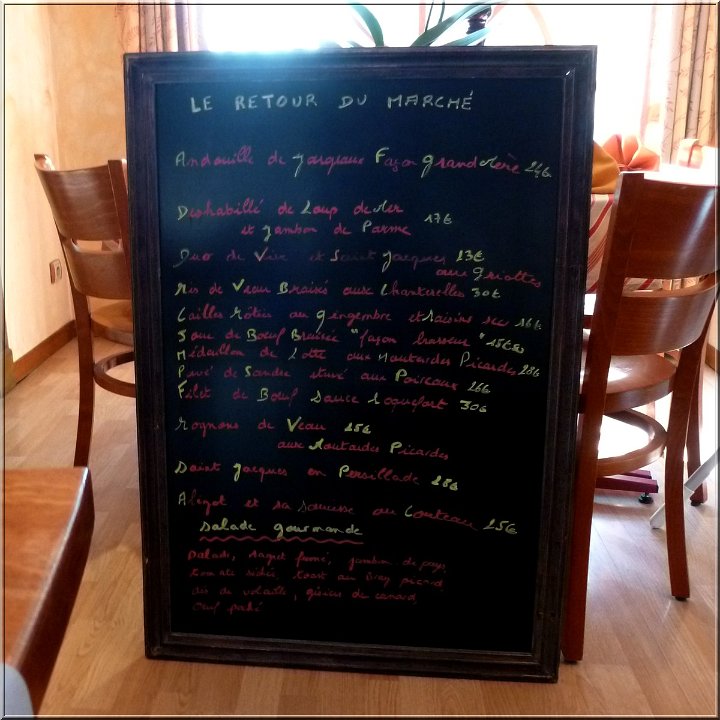 LE RETOUR DU MARCHÉ
Andouille de Jargeaux Façon GrandMère 24€
Deshabillé de Loup de Mer 17€
et Jambon de Parme
Duo de et Saint Jacques 13€
aux Griottes
Ris de Veau Braisés aux Chanterelles 30€
Cailles Rôties au Gingembre et Raisins sec 16€
Joue de Bœuf Braisée "façon brasseur"
Médaillon de Lotte aux Moutardes Picardes 28€
Pavé de Sandre aux Poireaux 26€
Filet de Bœuf Sauce Roquefort 30€
Rognons de Veau 25€
aux Moutardes Picardes
Saint Jacques en Persillade 28€
et sa saucisse au Couteau 25€
Salade gourmande
Salade, magret fumé, jambon de pays,
tomate séchée, toast au Bray picard
de volaille, gésiers de canard
œuf poché